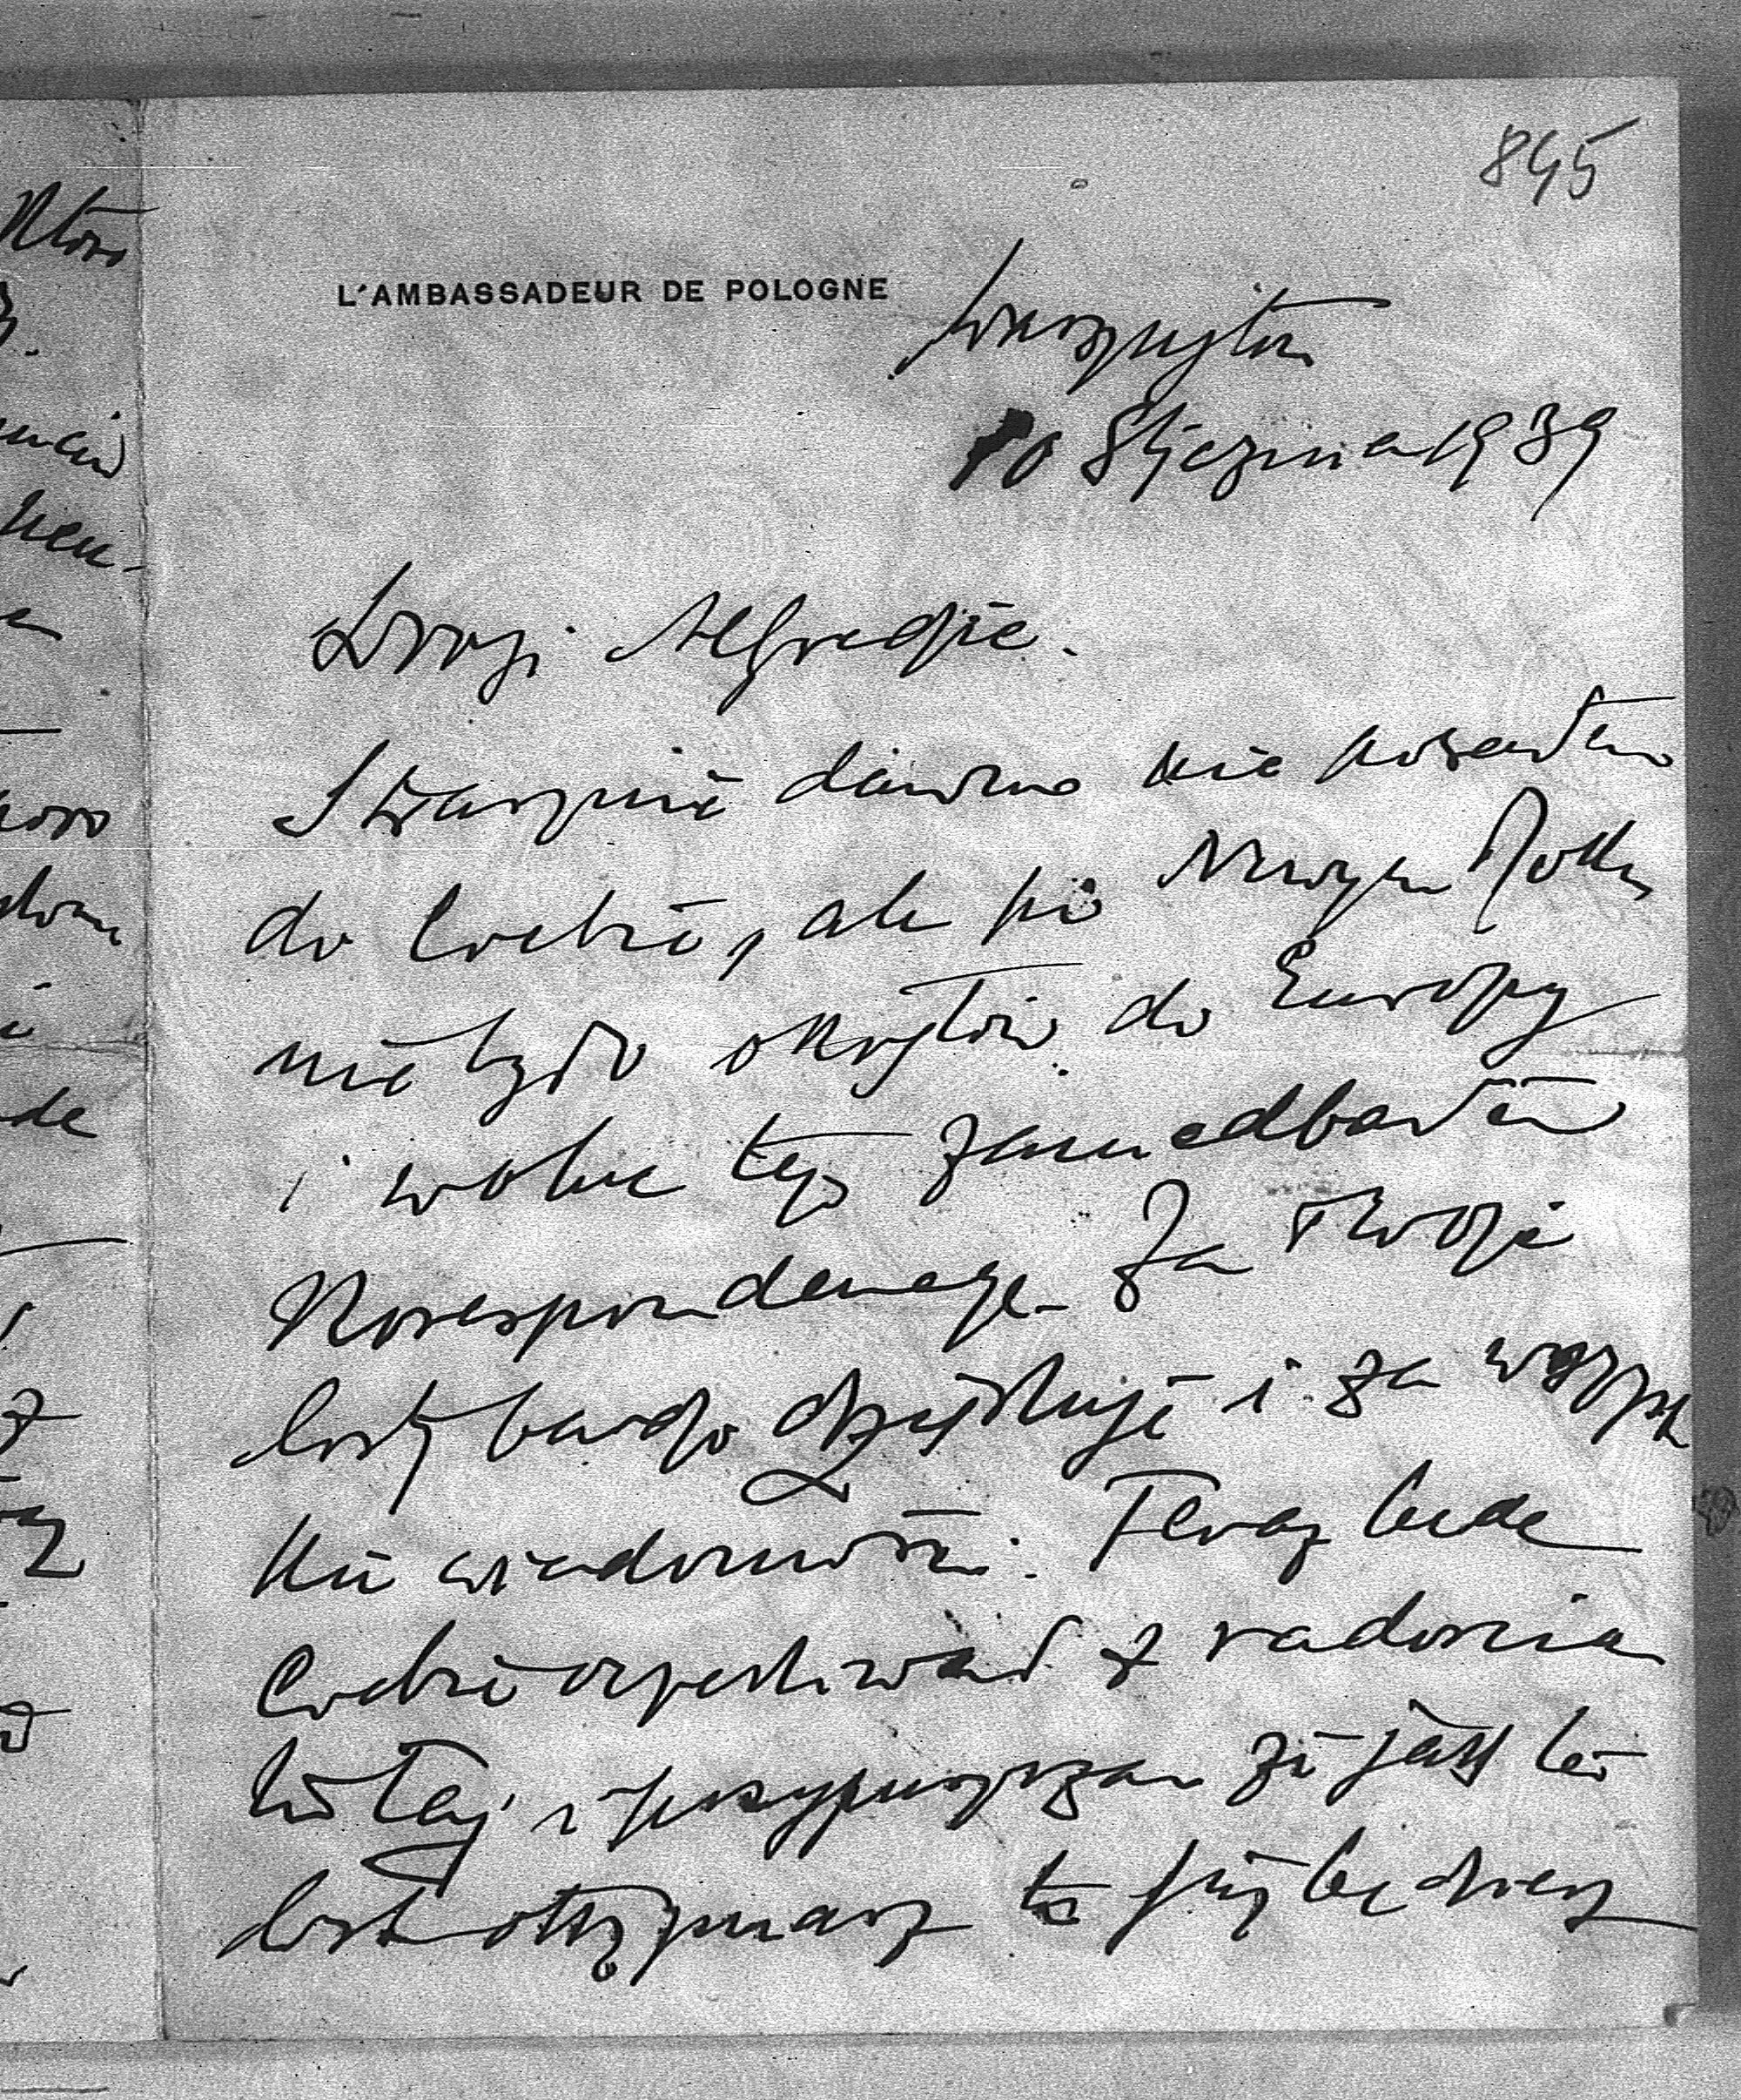 845
L'AMBASSADEUR DE POLOGNE
Waszyngton
10 Stycznia 1939
Drogi Alfredzie.
Strasznie dawno nie pisałem
do Ciebie, ale po Nowym Roku
nie było okrętów do Europy
i wobec tego zaniedbałem
Korespondencję. Za Twoje
listy bardzo dziękuję i za wszyst
kie wiadomości. Teraz będę
Ciebie oczekiwał z radością
tutaj i przypuszczam że jak ten
list otrzymasz to już będziesz